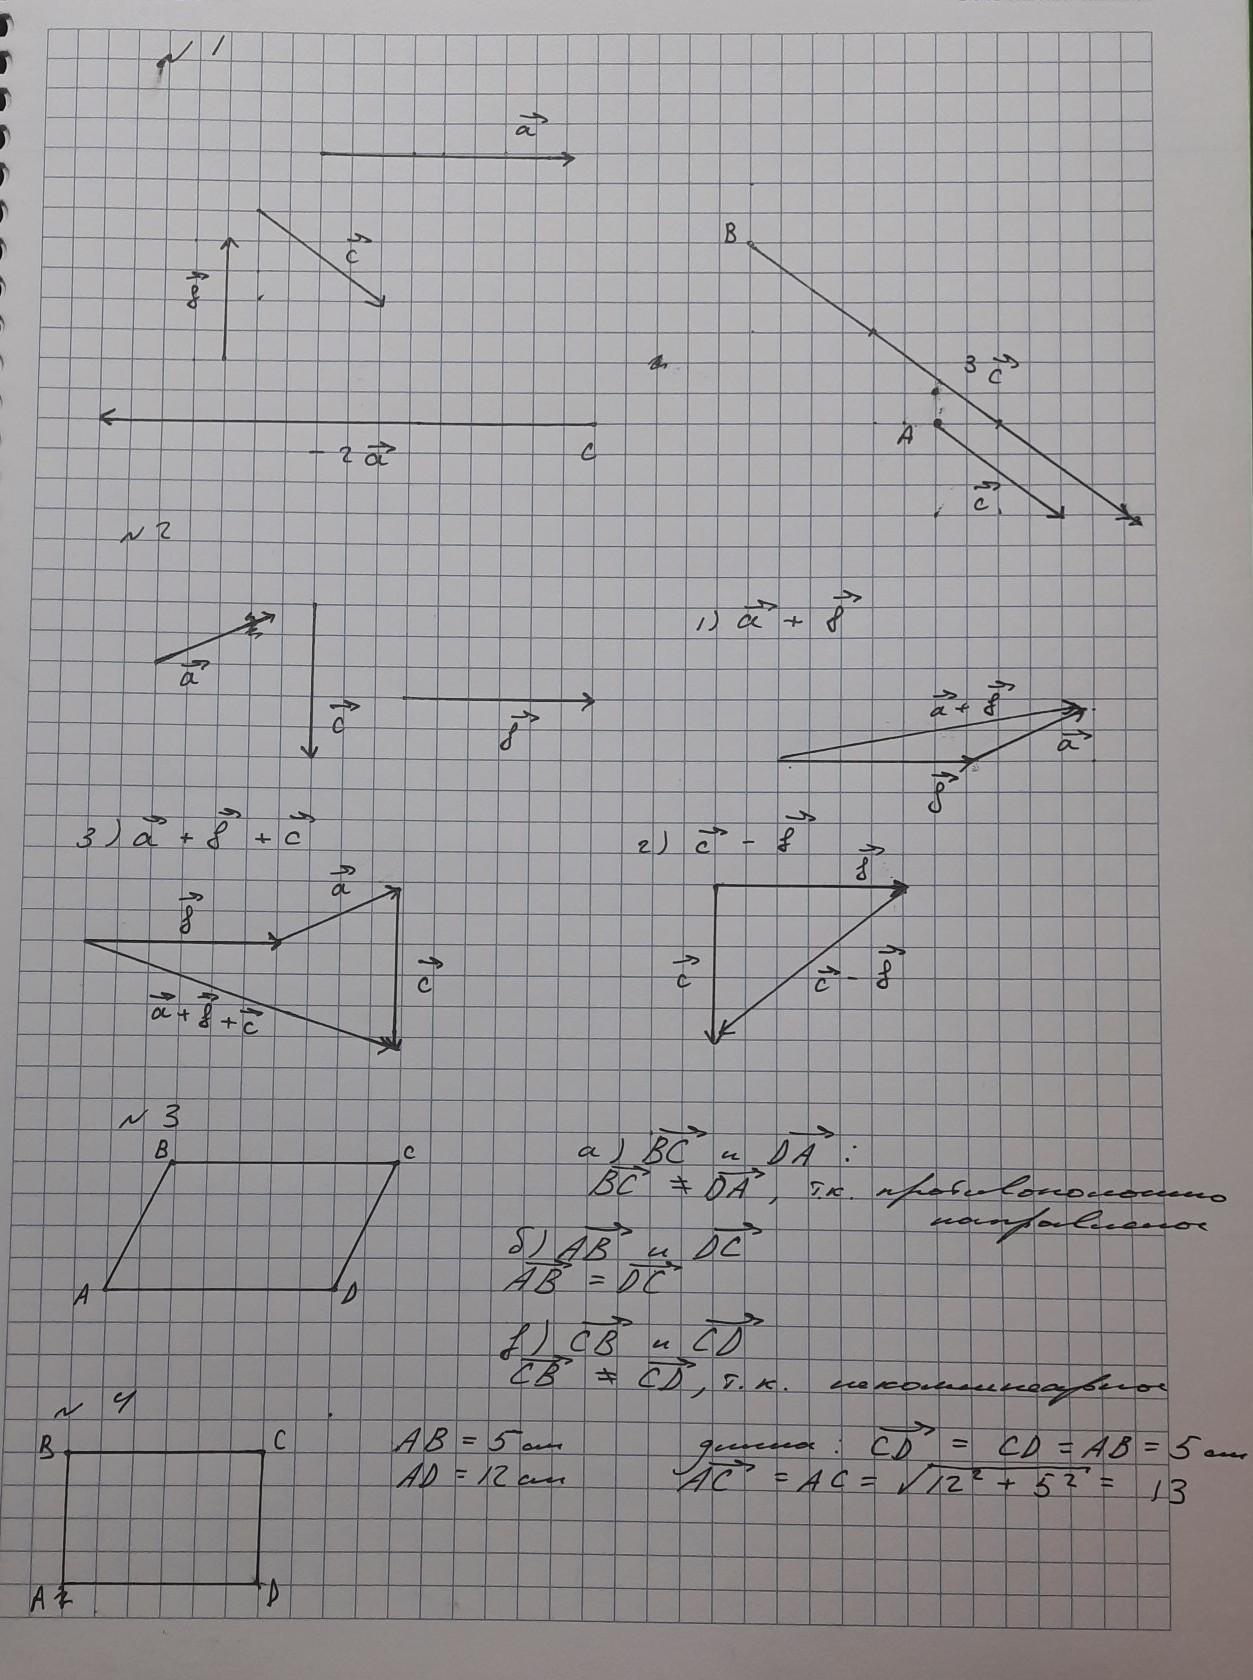 № 1
a
c
b
B
3 c
A
c
- 2 a
C
№ 2
a
c
b
1) a + b
a + b
a
b
3) a + b + c
b
a
c
a + b + c
2) c - b
b
c
c - b
№ 3
B
C
A
D
а) BC и DA :
BC ≠ DA, т.к. противоположно
направленные
б) AB и DC
AB = DC
в) CB и CD
CB ≠ CD, т.к. неколлинеарные
№ 4
B
C
A
D
AB = 5 см
AD = 12 см
длина : CD = CD = AB = 5 см
AC = AC = √12² + 5² = 13